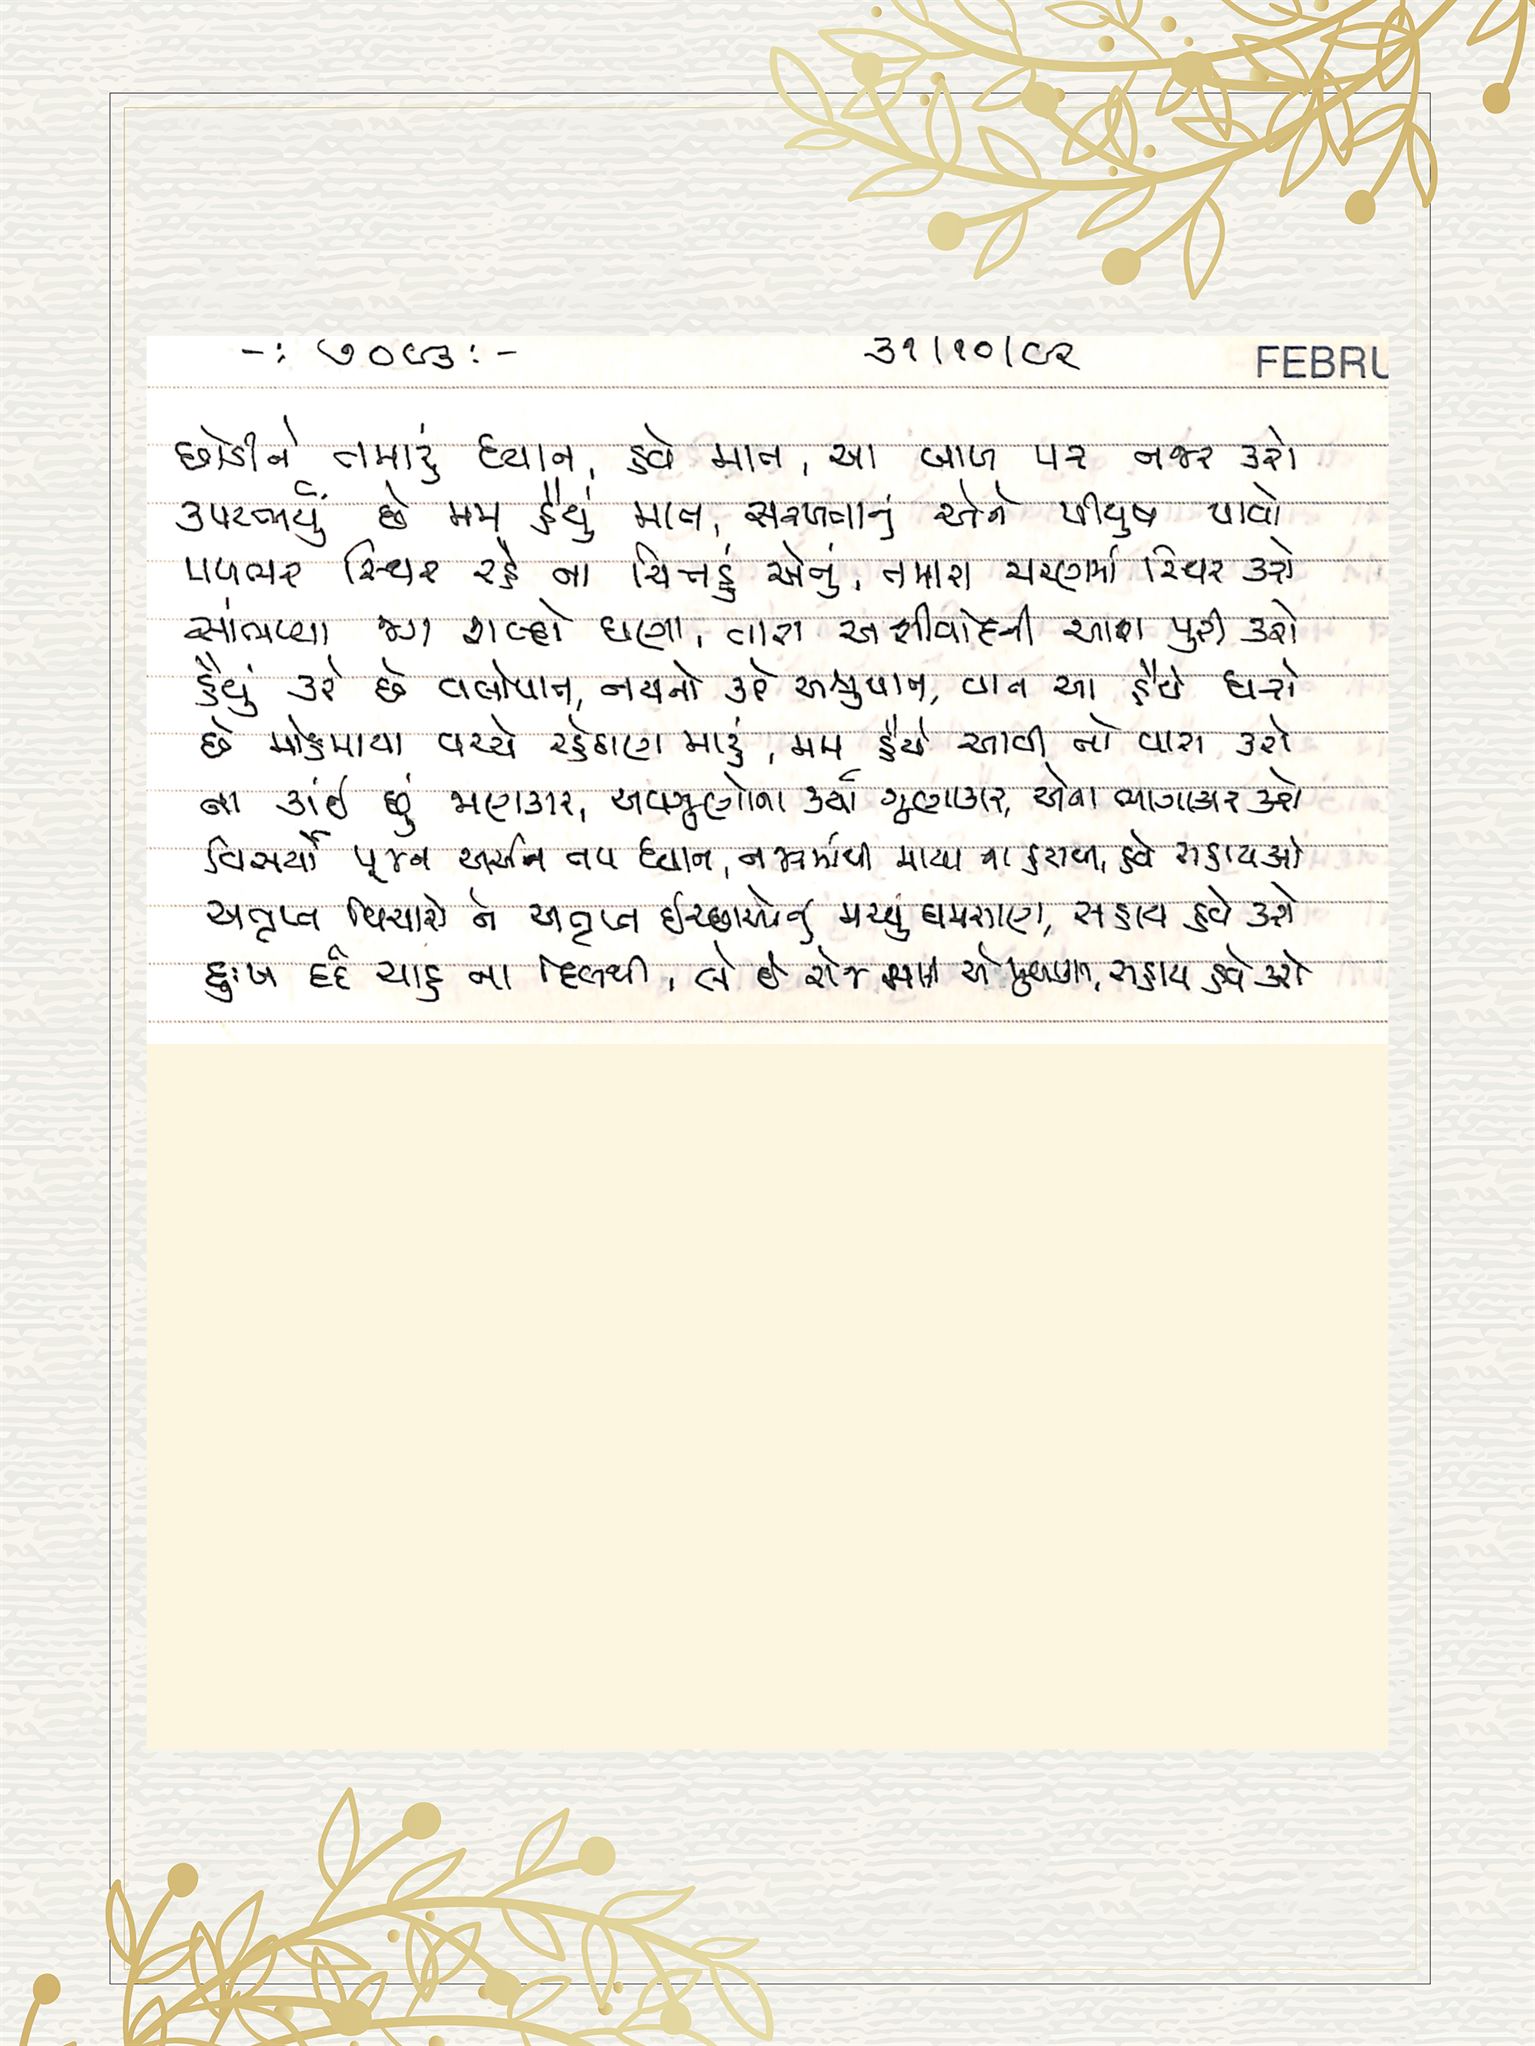 -: ૭૦૯૩ :- ૩૧/૧૦/૯૨ FEBRU
છોડીને તમારું ધ્યાન, હવે માન, આ બાળ પર નજર કરો
કપટભર્યું છે મમ હૈયું માત, સરળતાનું એને પીયુષ પાવો
પળભર સ્થિર રહે ના ચિત્તડું એનું, તમારા ચરણમાં સ્થિર કરો
સાંભળ્યા જગ શબ્દો ઘણા, તારા આશીર્વાદની આશ પુરી કરો
હૈયું કરે છે વલોપાત, નયનો કરે અશ્રુપાન, વાત આ હૈયે ધરો
છે મોહમાયા વચ્ચે રહેઠાણ મારું, મમ હૈયે આવી તો વાસ કરો
ના કાંઈ છું જાણકાર, અવગુણોના કર્યા ગુણાકાર, એના ભાગાકાર કરો
વિસર્યો પૂજન અર્ચન તપ ધ્યાન, નજરમાંથી માયા ના હટાવી, હવે સહાય કરો
અતૃપ્ત વિચારો ને અતૃપ્ત ઈચ્છાઓનું મચ્યું ઘમસાણ, સહાય હવે કરો
દુઃખ દર્દ ચાહું ના દિલથી, લે છે રોજ એ, સહાય હવે કરો